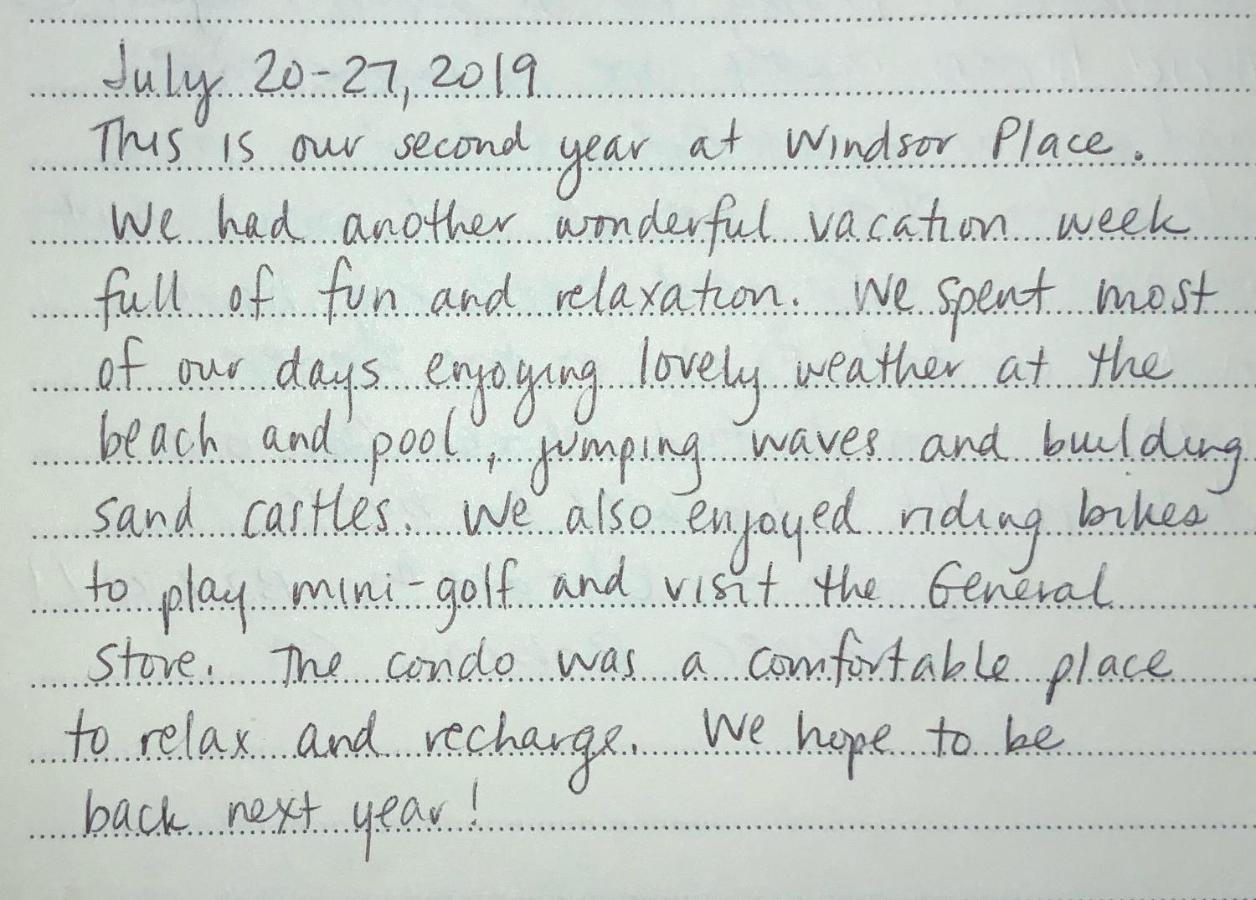 July 20-27, 2019
This is our second year at Windsor Place.
We had another wonderful vacation week
full of fun and relaxation. We spent most
of our days enjoying lovely weather at the
beach and pool, jumping waves and building
sand castles. We also enjoyed riding bikes
to play mini-golf and visit the General
Store. The condo was a comfortable place
to relax and recharge. We hope to be
back next year!